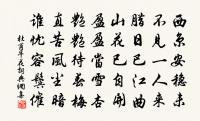 西京安穩未
不見一人來
臘日巴江曲
山花已自開
盈盈當雪杏
艷艷待春梅
直苦風塵暗
誰忧容鬢催
杜甫早花詩典網書